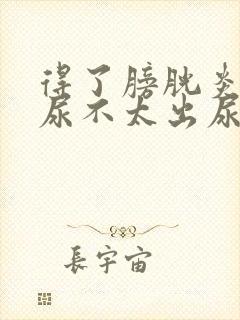 得了膀胱炎
尿不太出尿
長宇宙